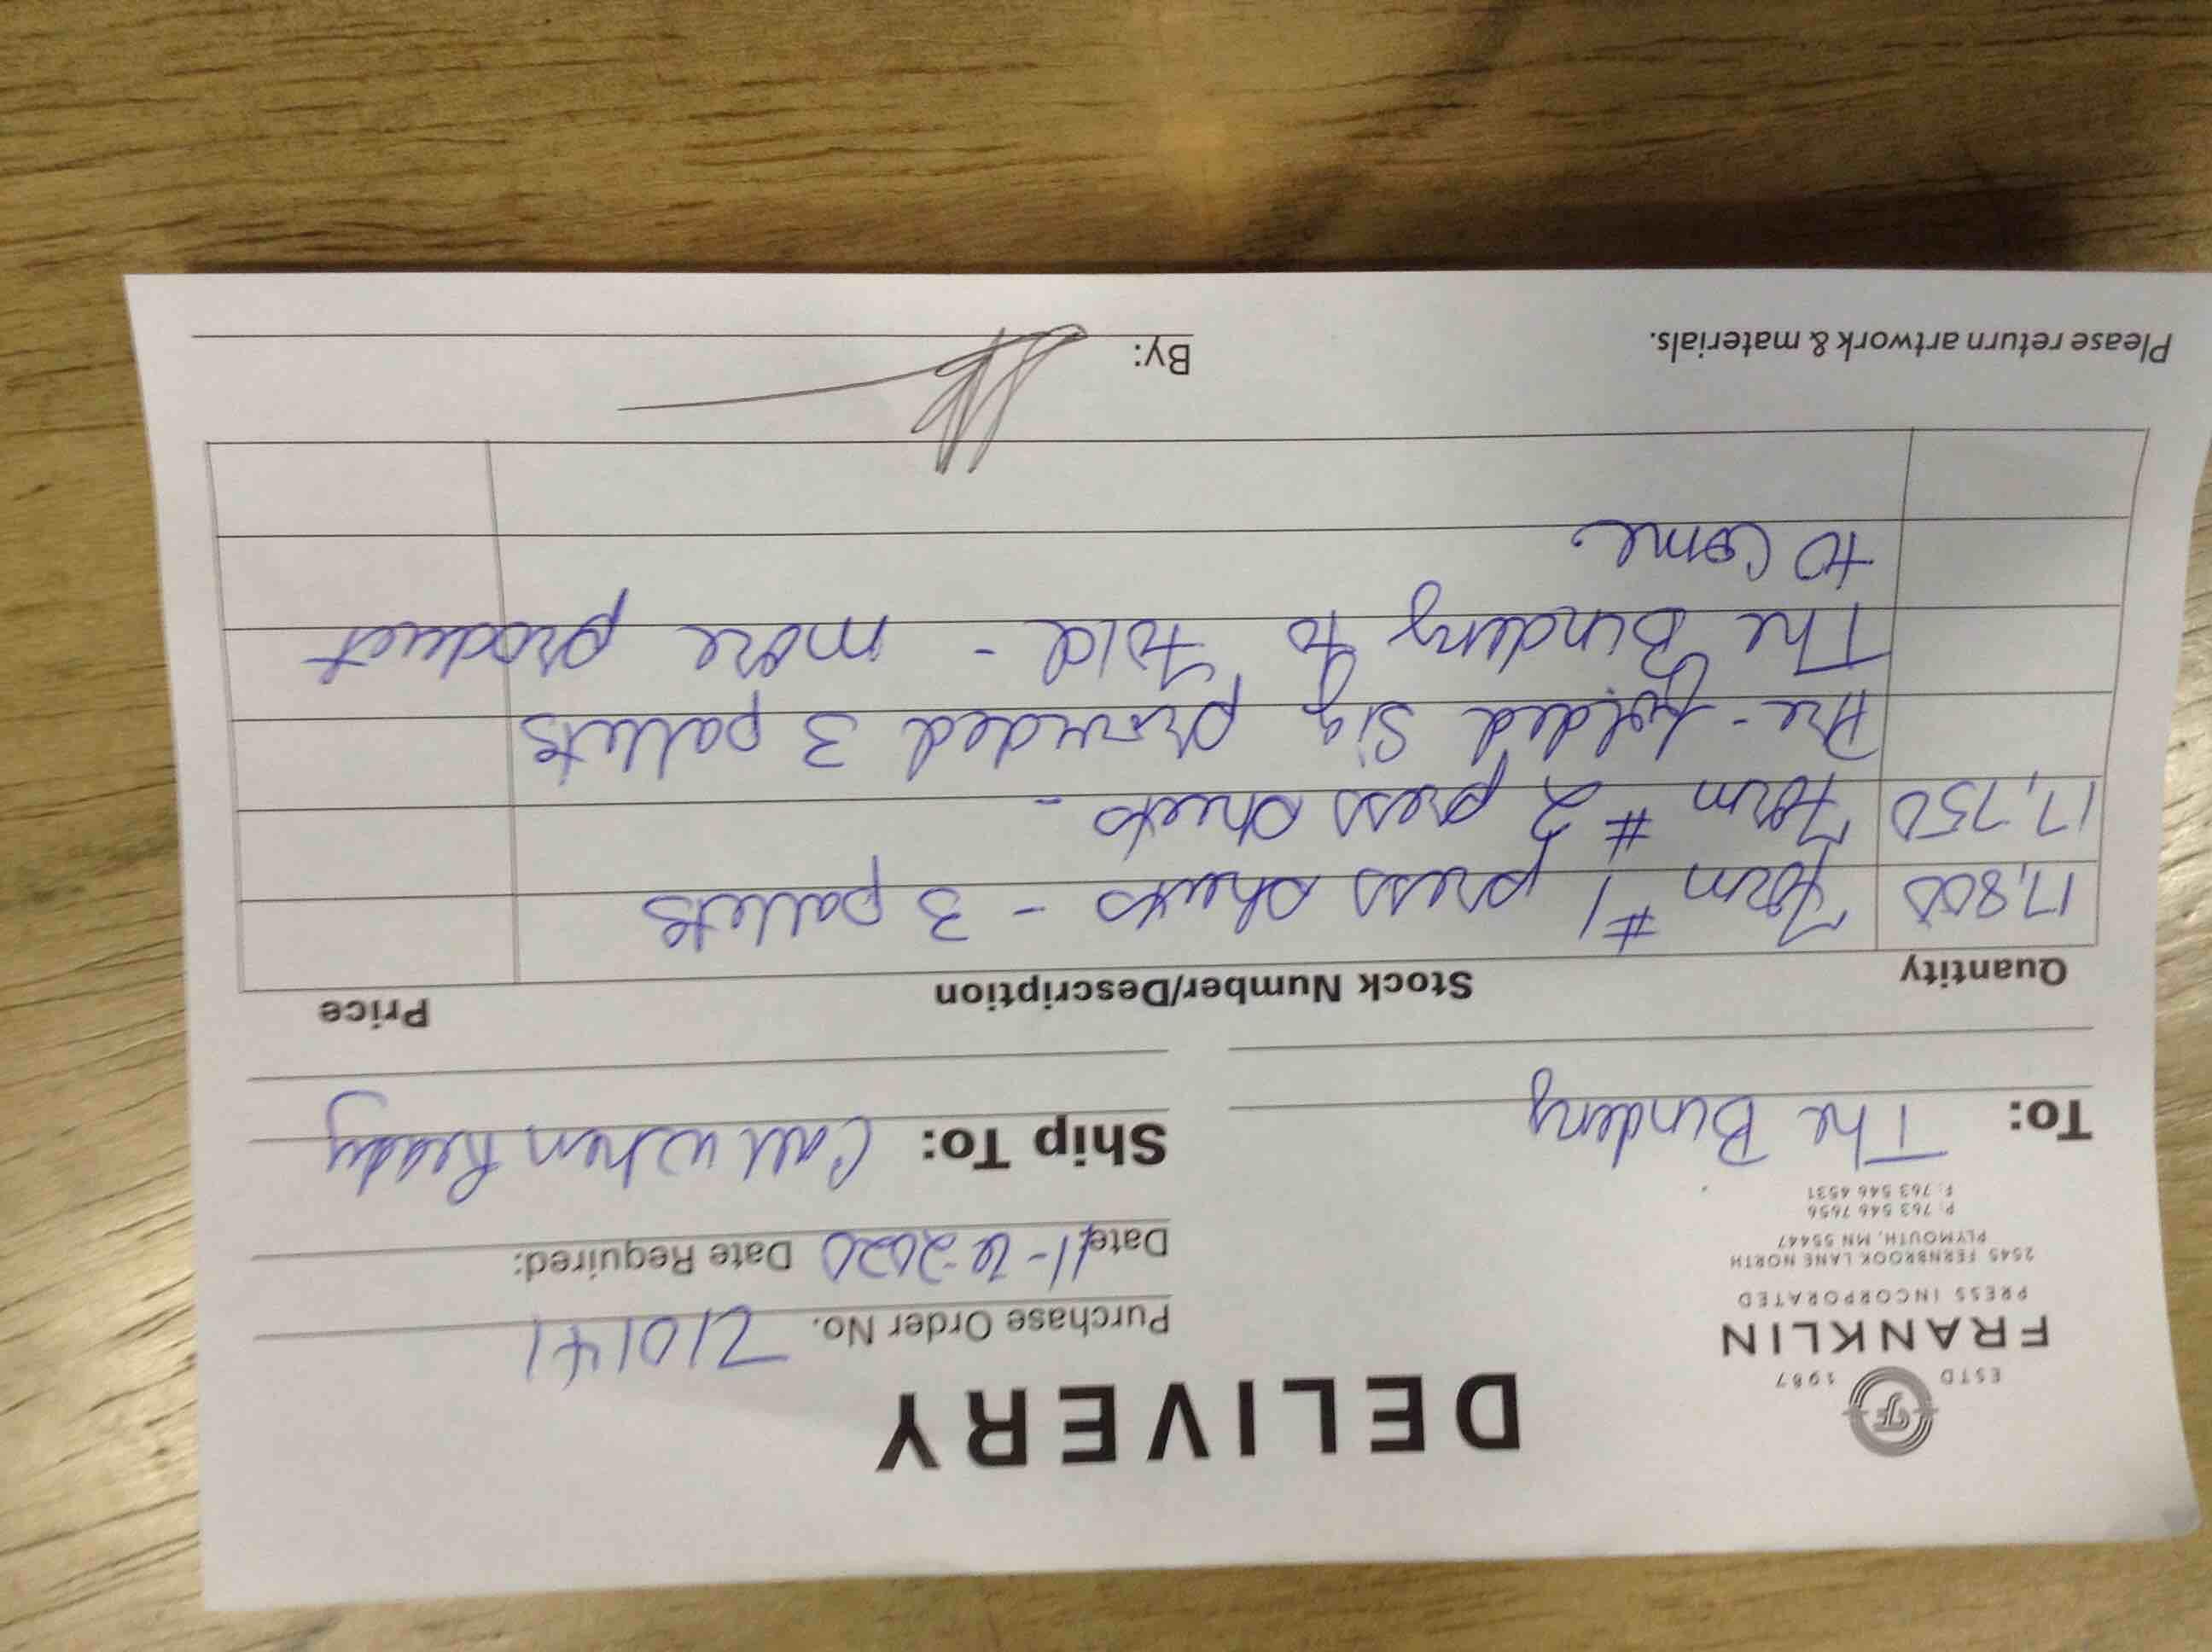 ESTD 1967
FRANKLIN
PRESS INCORPORATED
2545 FERNBROOK LANE NORTH
PLYMOUTH, MN 55447
P: 763 546 7656
F: 763 546 4531
DELIVERY
Purchase Order No. 210141
Date: 11-6-2020 Date Required:
To: The Bindery
Ship To: Call when Ready
Quantity Stock Number/Description Price
17,800 Form #1 press sheets - 3 pallets
17,750 Form #2 press sheets -
Pre-folded Sig provided 3 pallets
The Bindery to fold - more product
to come.
Please return artwork & materials.
By: